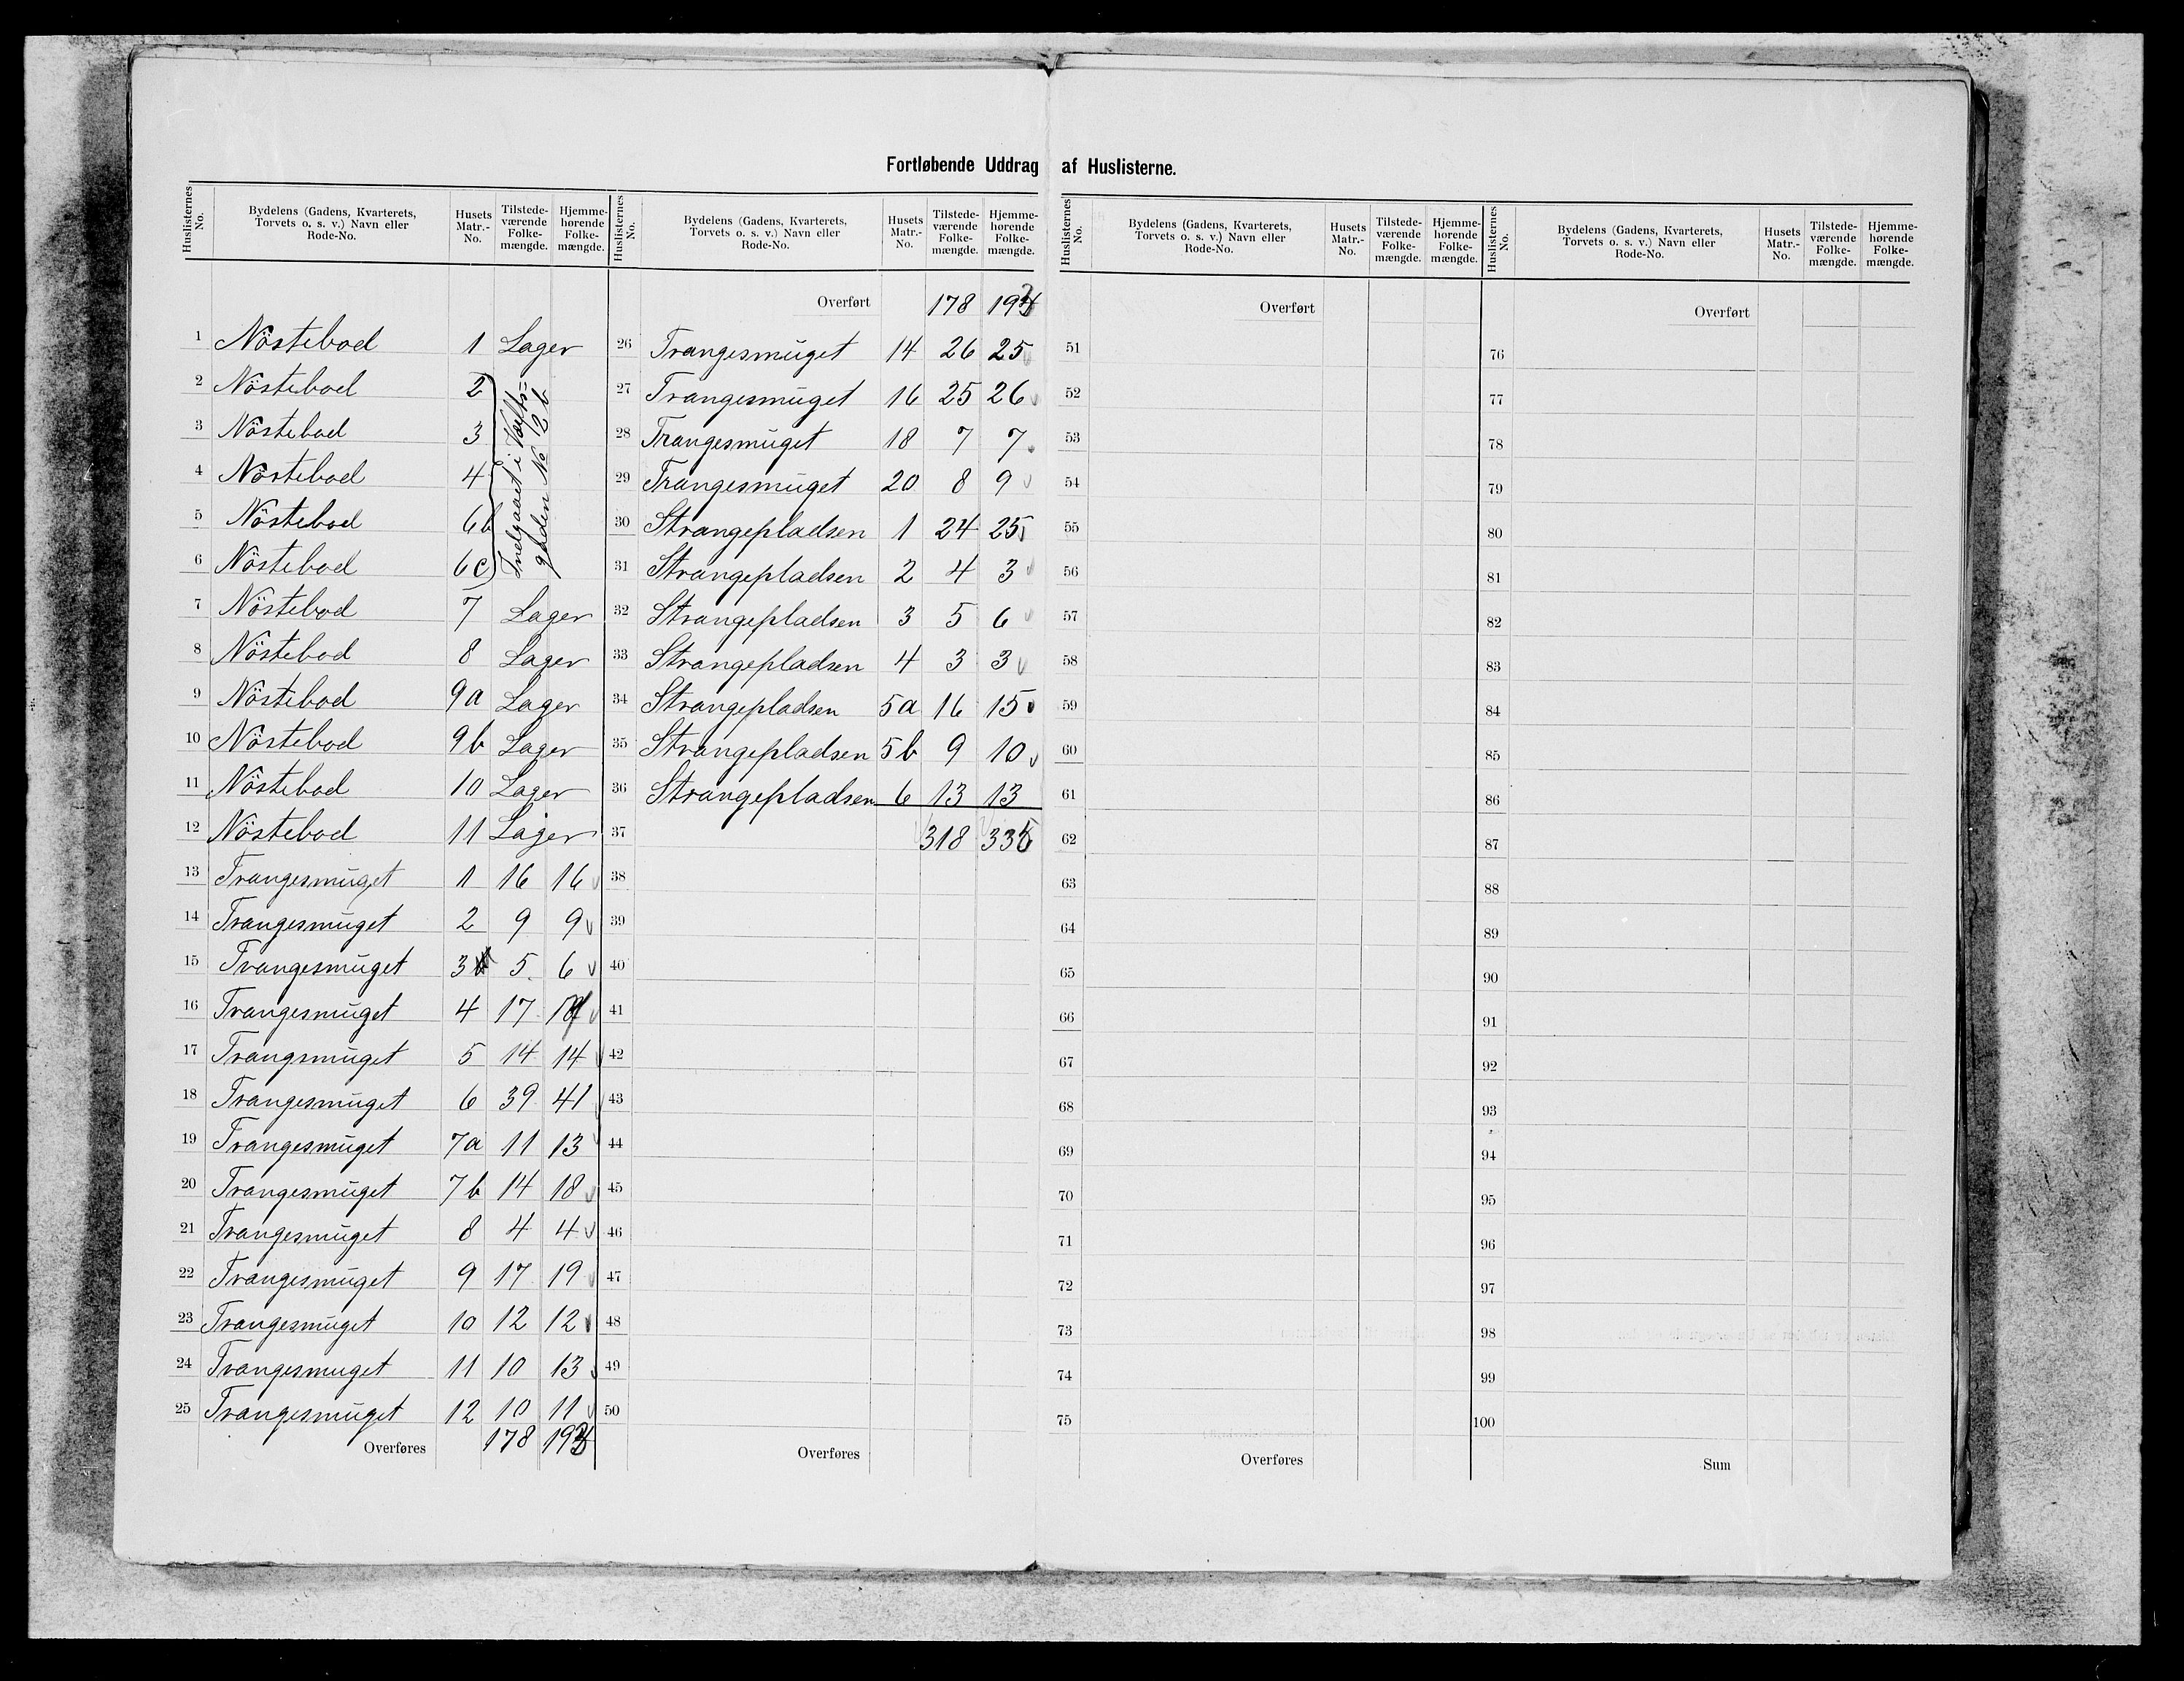 Fortløbende Uddrag af Huslisterne.
Huslisternes No. Bydelens (Gadens, Kvarterets, Torvets o. s. v.) Navn eller Rode-No. Husets Matr.-No. Tilstedeværende Folkemængde. Hjemmehørende Folkemængde.
1 Nöstebod 1 Lager
2 Nöstebod 2
3 Nöstebod 3
4 Nöstebod 4
5 Nöstebod 6b
6 Nöstebod 6c
Indgaaet i
gaden No 2b
7 Nöstebod 7 Lager
8 Nöstebod 8 Lager
9 Nöstebod 9a Lager
10 Nöstebod 9b Lager
11 Nöstebod 10 Lager
12 Nöstebod 11 Lager
13 Trangesmuget 1 16 16
14 Trangesmuget 2 9 9
15 Trangesmuget 3 5 6
16 Trangesmuget 4 17
17 Trangsmuget 5 14 14
18 Trangesmuget 6 39 41
19 Trangesmuget 7a 11 13
20 Trangesmuget 7b 14 18
21 Trangesmuget 8 4 4
22 Trangesmuget 9 17 19
23 Trangesmuget 10 12 12
24 Trangesmuget 11 10 13
25 Trangesmuget 12 10 11
Overføres 178
Huslisternes No. Bydelens (Gadens, Kvarterets, Torvets o. s. v.) Navn eller Rode-No. Husets Matr.-No. Tilstedeværende Folkemængde. Hjemmehørende Folkemængde.
Overført 178
26 Trangesmuget 14 26 25
27 Trangesmuget 16 25 26
28 Trangesmuget 18 7 7
29 Trangesmuget 20 8 9
30 Strangepladsen 1 24 25
31 Strangepladsen 2 4 3
32 Strangepladsen 3 5 6
33 Strangepladsen 4 3 3
34 Strangepladsen 5a 16 15
35 Strangepladsen 5b 9 10
36 Strangepladsen 6 13 13
37 318
38
39
40
41
42
43
44
45
46
47
48
49
50
Overføres
Huslisternes No. Bydelens (Gadens, Kvarterets, Torvets o. s. v.) Navn eller Rode-No. Husets Matr.-No. Tilstedeværende Folkemængde. Hjemmehørende Folkemængde.
Overført
51
52
53
54
55
56
57
58
59
60
61
62
63
64
65
66
67
68
69
70
71
72
73
74
75
Overføres
Huslisternes No. Bydelens (Gadens, Kvarterets, Torvets o. s. v.) Navn eller Rode-No. Husets Matr.-No. Tilstedeværende Folkemængde. Hjemmehørende Folkemængde.
Overført
76
77
78
79
80
81
82
83
84
85
86
87
88
89
90
91
92
93
94
95
96
97
98
99
100
Sum